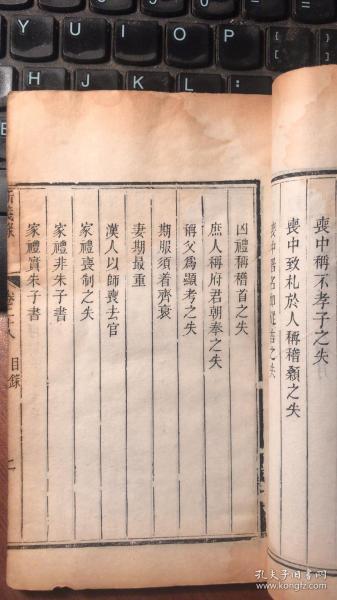 喪中稱不孝子之失
喪中致札於人稱稽顙之失
凶禮稱稽首之失
庶人稱府君朝奉之失
稱父為顯考之失
期服須着齊衰
妻期最重
漢人以師喪去官
家禮喪制之失
家禮非朱子書
家禮實朱子書
目錄
Y U I O P
H J K L
孔夫子旧书网